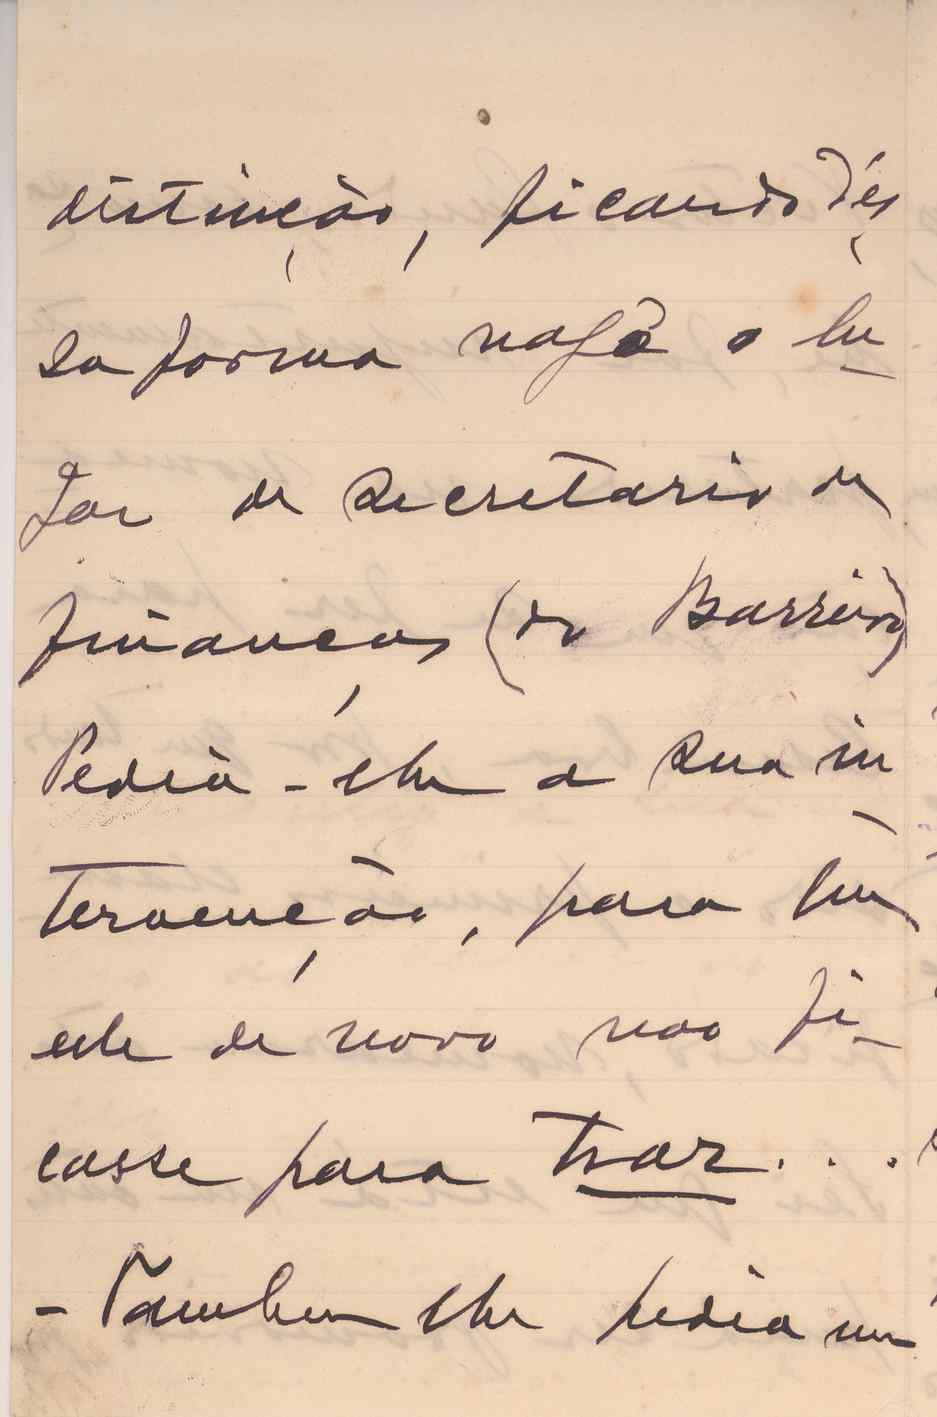 distinção, ficando dés
sa forma vago o lu
gar de Secretario de
finanças (do Barreiro)
Pedia-lhe a sua in
tervenção, para que
ele de novo não fi-
casse para traz...
- Tambem lhe pedia um